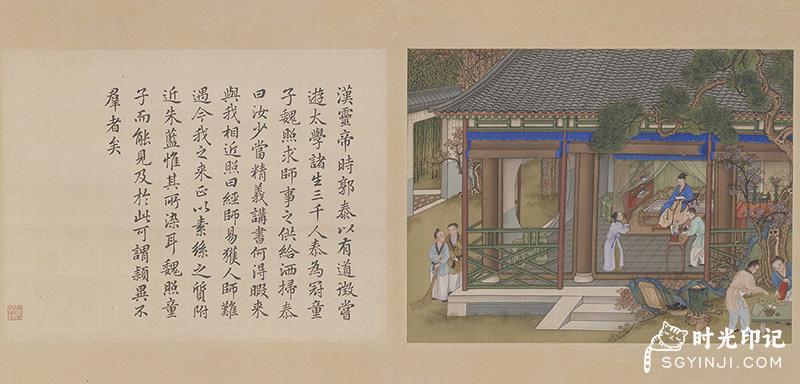 漢靈帝時郭泰以有道徵嘗
遊太學諸生三千人泰為冠童
子魏照求師事之供給洒掃泰
曰汝少當精義講書何得暇來
與我相近照曰經師易獲人師難
遇今我之来正以素絲之質附
近朱藍惟其所染耳魏照童
子而能見及於此可謂頴異不
羣者矣
时光印记
SGYINJI.COM